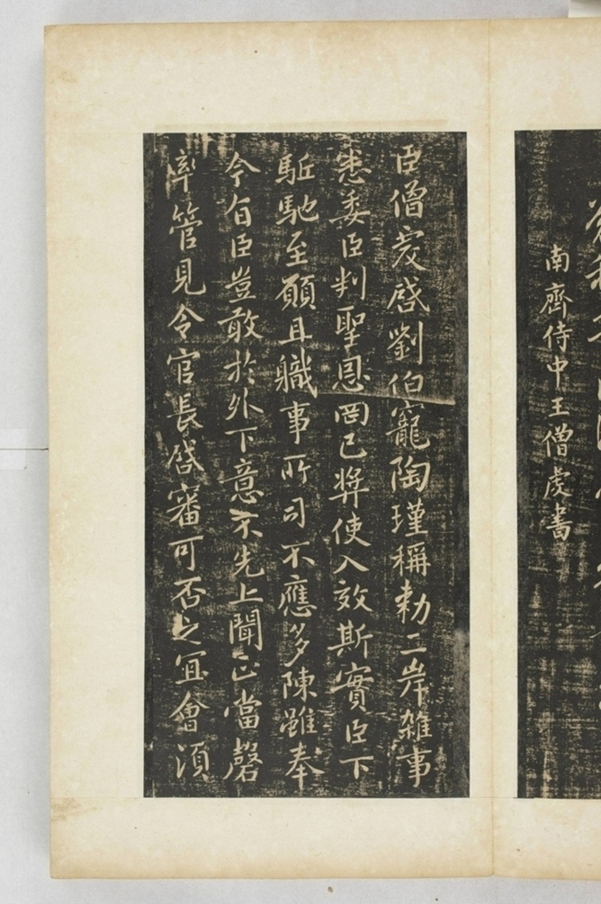 南齊侍中王僧虔書
臣僧虔啓劉伯寵陶瑾稱勅二岸雜事
悉委臣判聖恩罔已獎使入效斯實臣下
駈馳至願且職事所司不應多陳雖奉
今旨臣豈敢於外下意不先上聞正當罄
率管見令官長啓審可否之宜會須